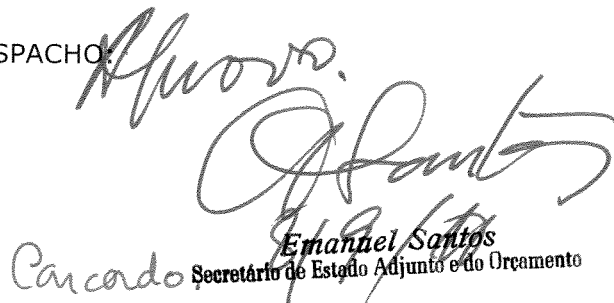 SPACHO:
Aprovo.
E Santos
Emanuel Santos
Concordo. Secretário de Estado Adjunto e do Orçamento